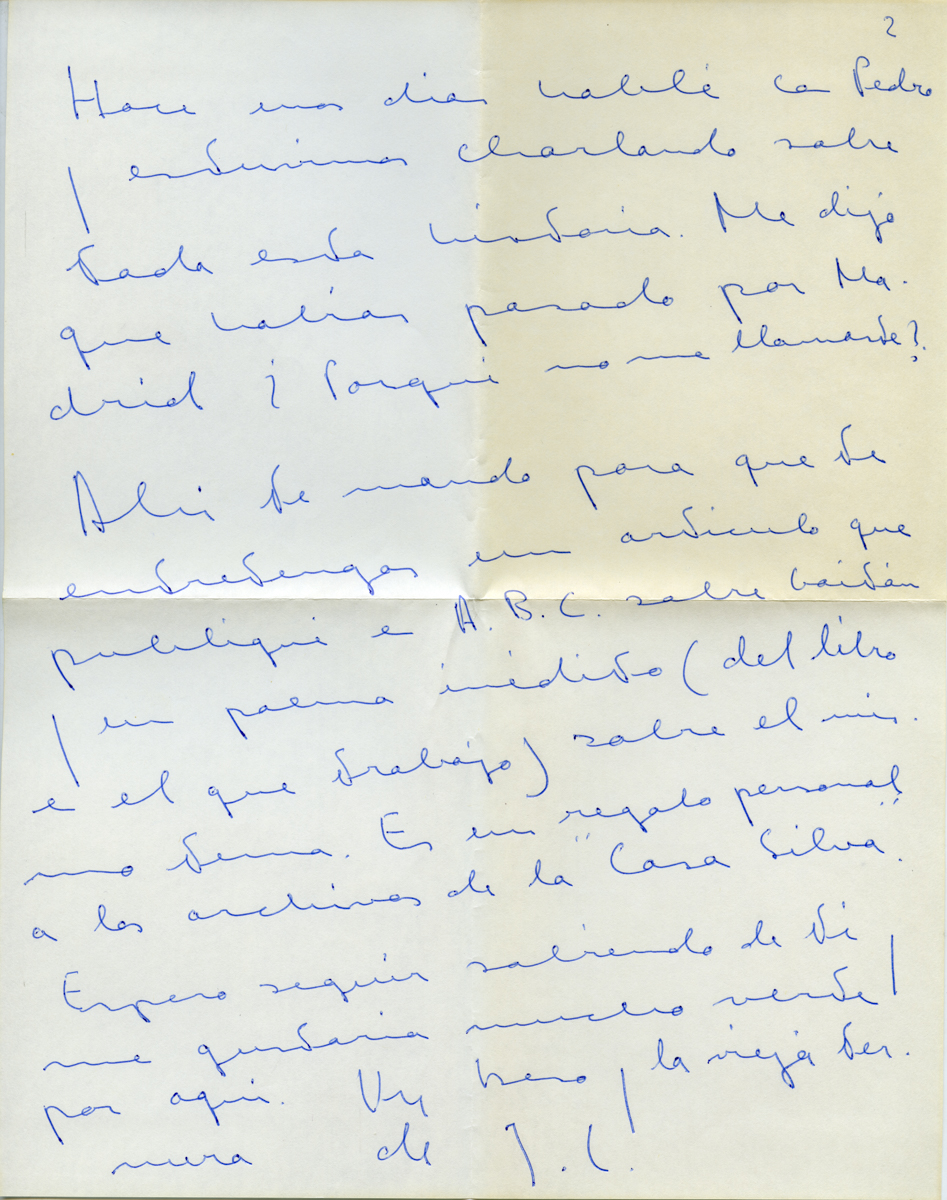 2
Hace unos dias hablé con Pedro
y estuvimos charlando sobre
toda esta historia. Me dijo
que habías pasado por Ma-
drid ¿Porqué no me llamaste?.
Ahi te mando para que te
entretengas un artículo que
publiqué en A.B.C. sobre Gaitán
y un poema inédito (del libro
en el que trabajo) sobre el mis-
mo tema. Es un regalo personal
a los archivos de la "Casa Silva".
Espero seguir sabiendo de ti y
me gustaria mucho verte
por aqui. Un beso y la vieja ter-
nura de J.C.